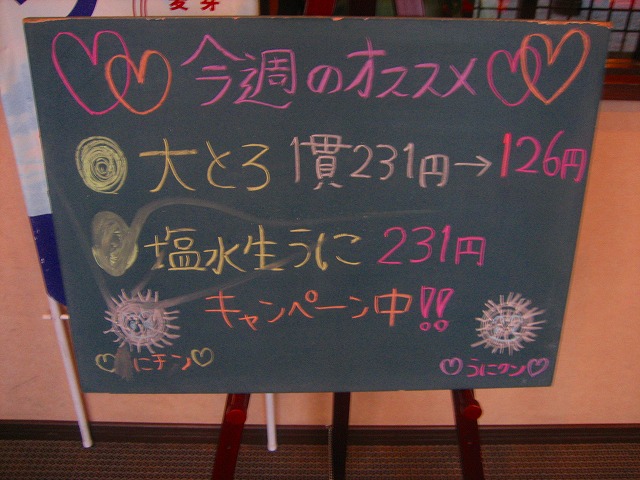 麦芽
今週のオススメ
大とろ 1貫231円→126円
塩水生うに 231円
キャンペーン中!!
にチン
うにクン